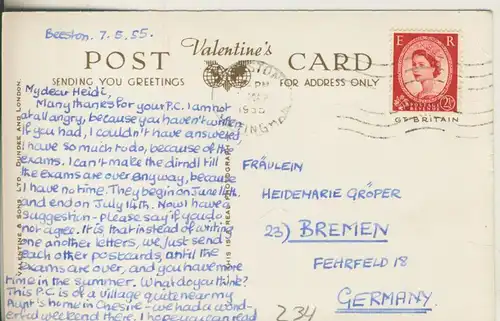 Beeston. 7.5.55.
Valentine's
POST CARD
SENDING YOU GREETINGS
FOR ADDRESS ONLY
My dear Heidi,
Many thanks for your P.C. I am not
at all angry, because you haven't written
if you had, I couldn't have answered,
I have so much to do, because of the
exams. I can't make the dirndl till
the exams are over anyway, because
I have no time. They begin on June
and end on July 14th. Now I have a
suggestion - please say if you do
not agree. It is that instead of writing
one another letters, we just send
each other postcards, until the
exams are over, and you have more
time in the summer. What do you think?
This P.C. is of a village quite near my
Aunt's home in Chesire - we had a wond-
erful weekend there. I hope you can read
FRÄULEIN
HEIDEMARIE GRÖPER
23) BREMEN
FEHRFELD 18
GERMANY.
234
E R
POSTAGE REVENUE
2½D
GT BRITAIN
PM
1955
NOTTINGHAM
VALENTINE & SONS LTD., DUNDEE AND LONDON.
THIS IS A REAL PHOTOGRAPH